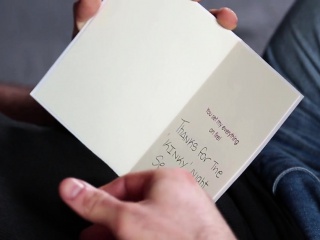 You set my everything
on fire!
Thanks for The
'KINKY' night
Se